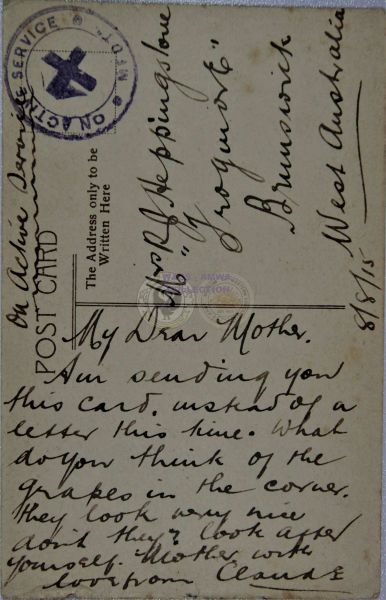 ON ACTIVE SERVICE
On Active Service
POST CARD
The Address only to be
Written Here
Mrs R J Heppingstone
"Frogmore"
Brunswick
West Australia
8/8/15
My Dear Mother.
Am sending you
this card. instead of a
letter this time. What
do you think of the
grapes in the corner.
they look very nice
dont they? look after
yourself. Mother with
love from Claude
COLLECTION